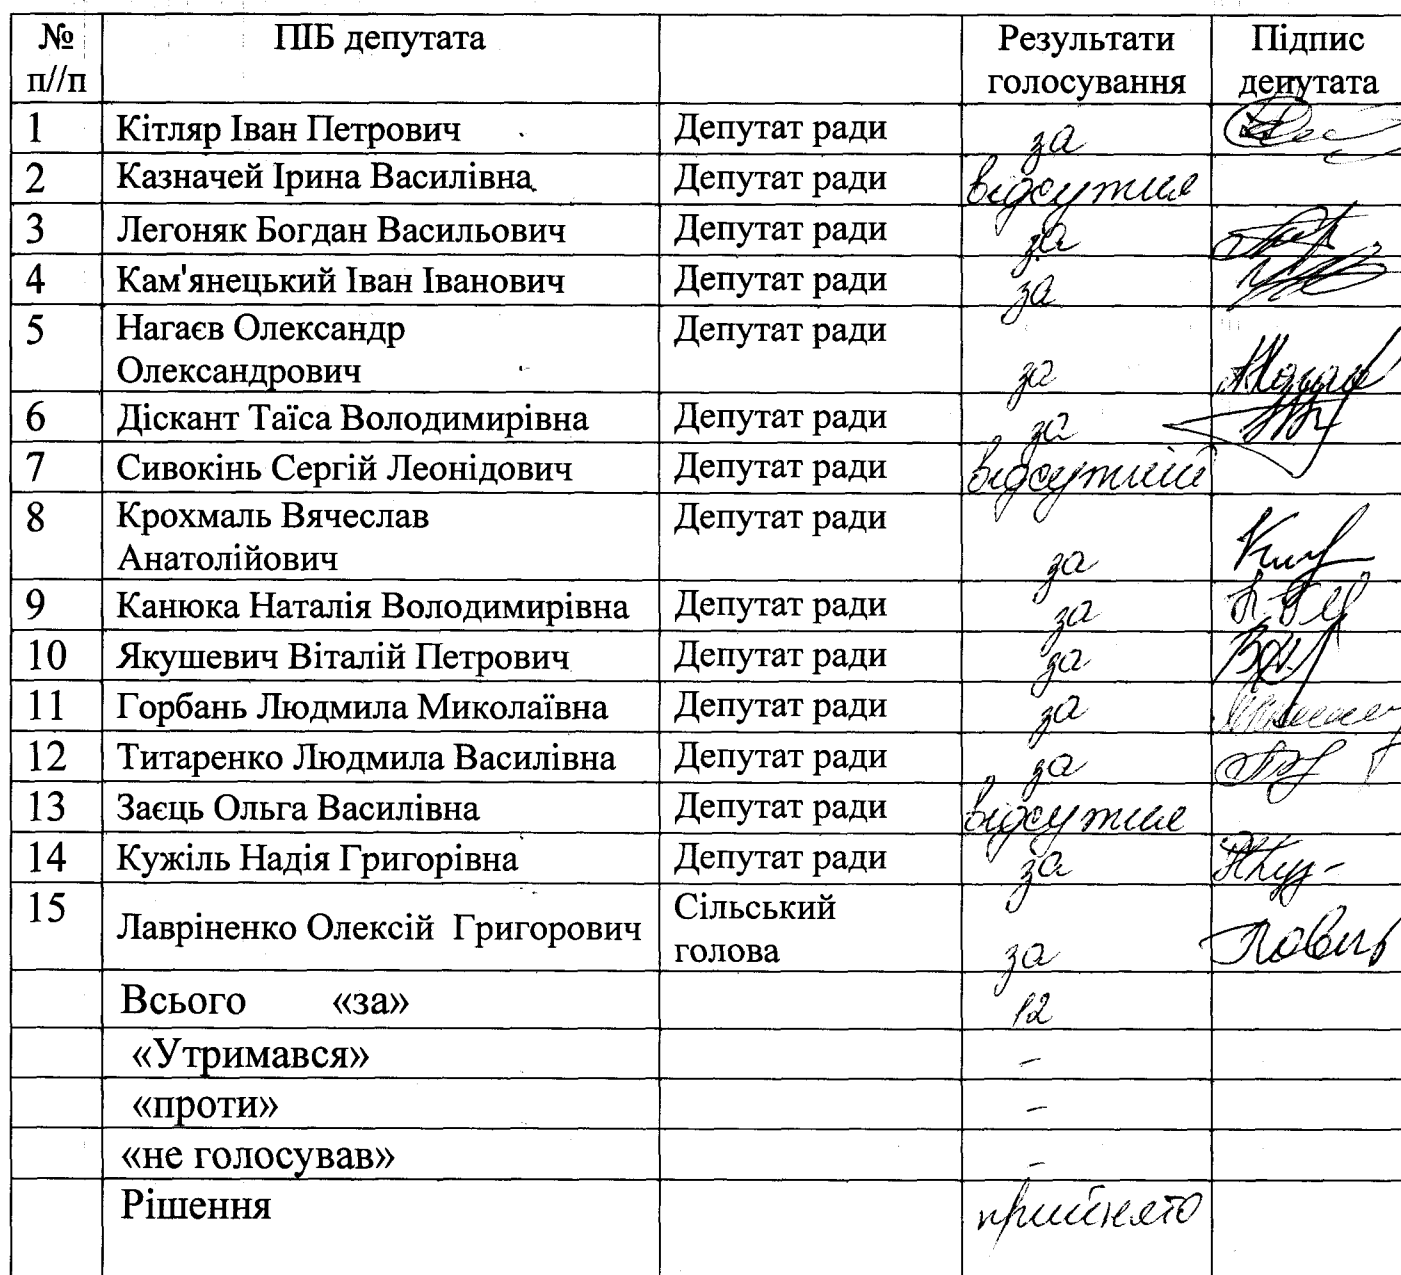 № п//п ПІБ депутата Результати голосування Підпис депутата
1 Кітляр Іван Петрович Депутат ради за
2 Казначей Ірина Василівна Депутат ради відсутня
3 Легоняк Богдан Васильович Депутат ради за
4 Кам'янецький Іван Іванович Депутат ради за
5 Нагаєв Олександр Депутат ради
Олександрович за
6 Діскант Таїса Володимирівна Депутат ради за
7 Сивокінь Сергій Леонідович Депутат ради відсутній
8 Крохмаль Вячеслав Депутат ради
Анатолійович за
9 Канюка Наталія Володимирівна Депутат ради за
10 Якушевич Віталій Петрович Депутат ради за
11 Горбань Людмила Миколаївна Депутат ради за
12 Титаренко Людмила Василівна Депутат ради за
13 Заєць Ольга Василівна Депутат ради відсутня
14 Кужіль Надія Григорівна Депутат ради за
15 Лавріненко Олексій Григорович Сільський голова за
Всього «за» 12
«Утримався» -
«проти» -
«не голосував» -
Рішення прийнято